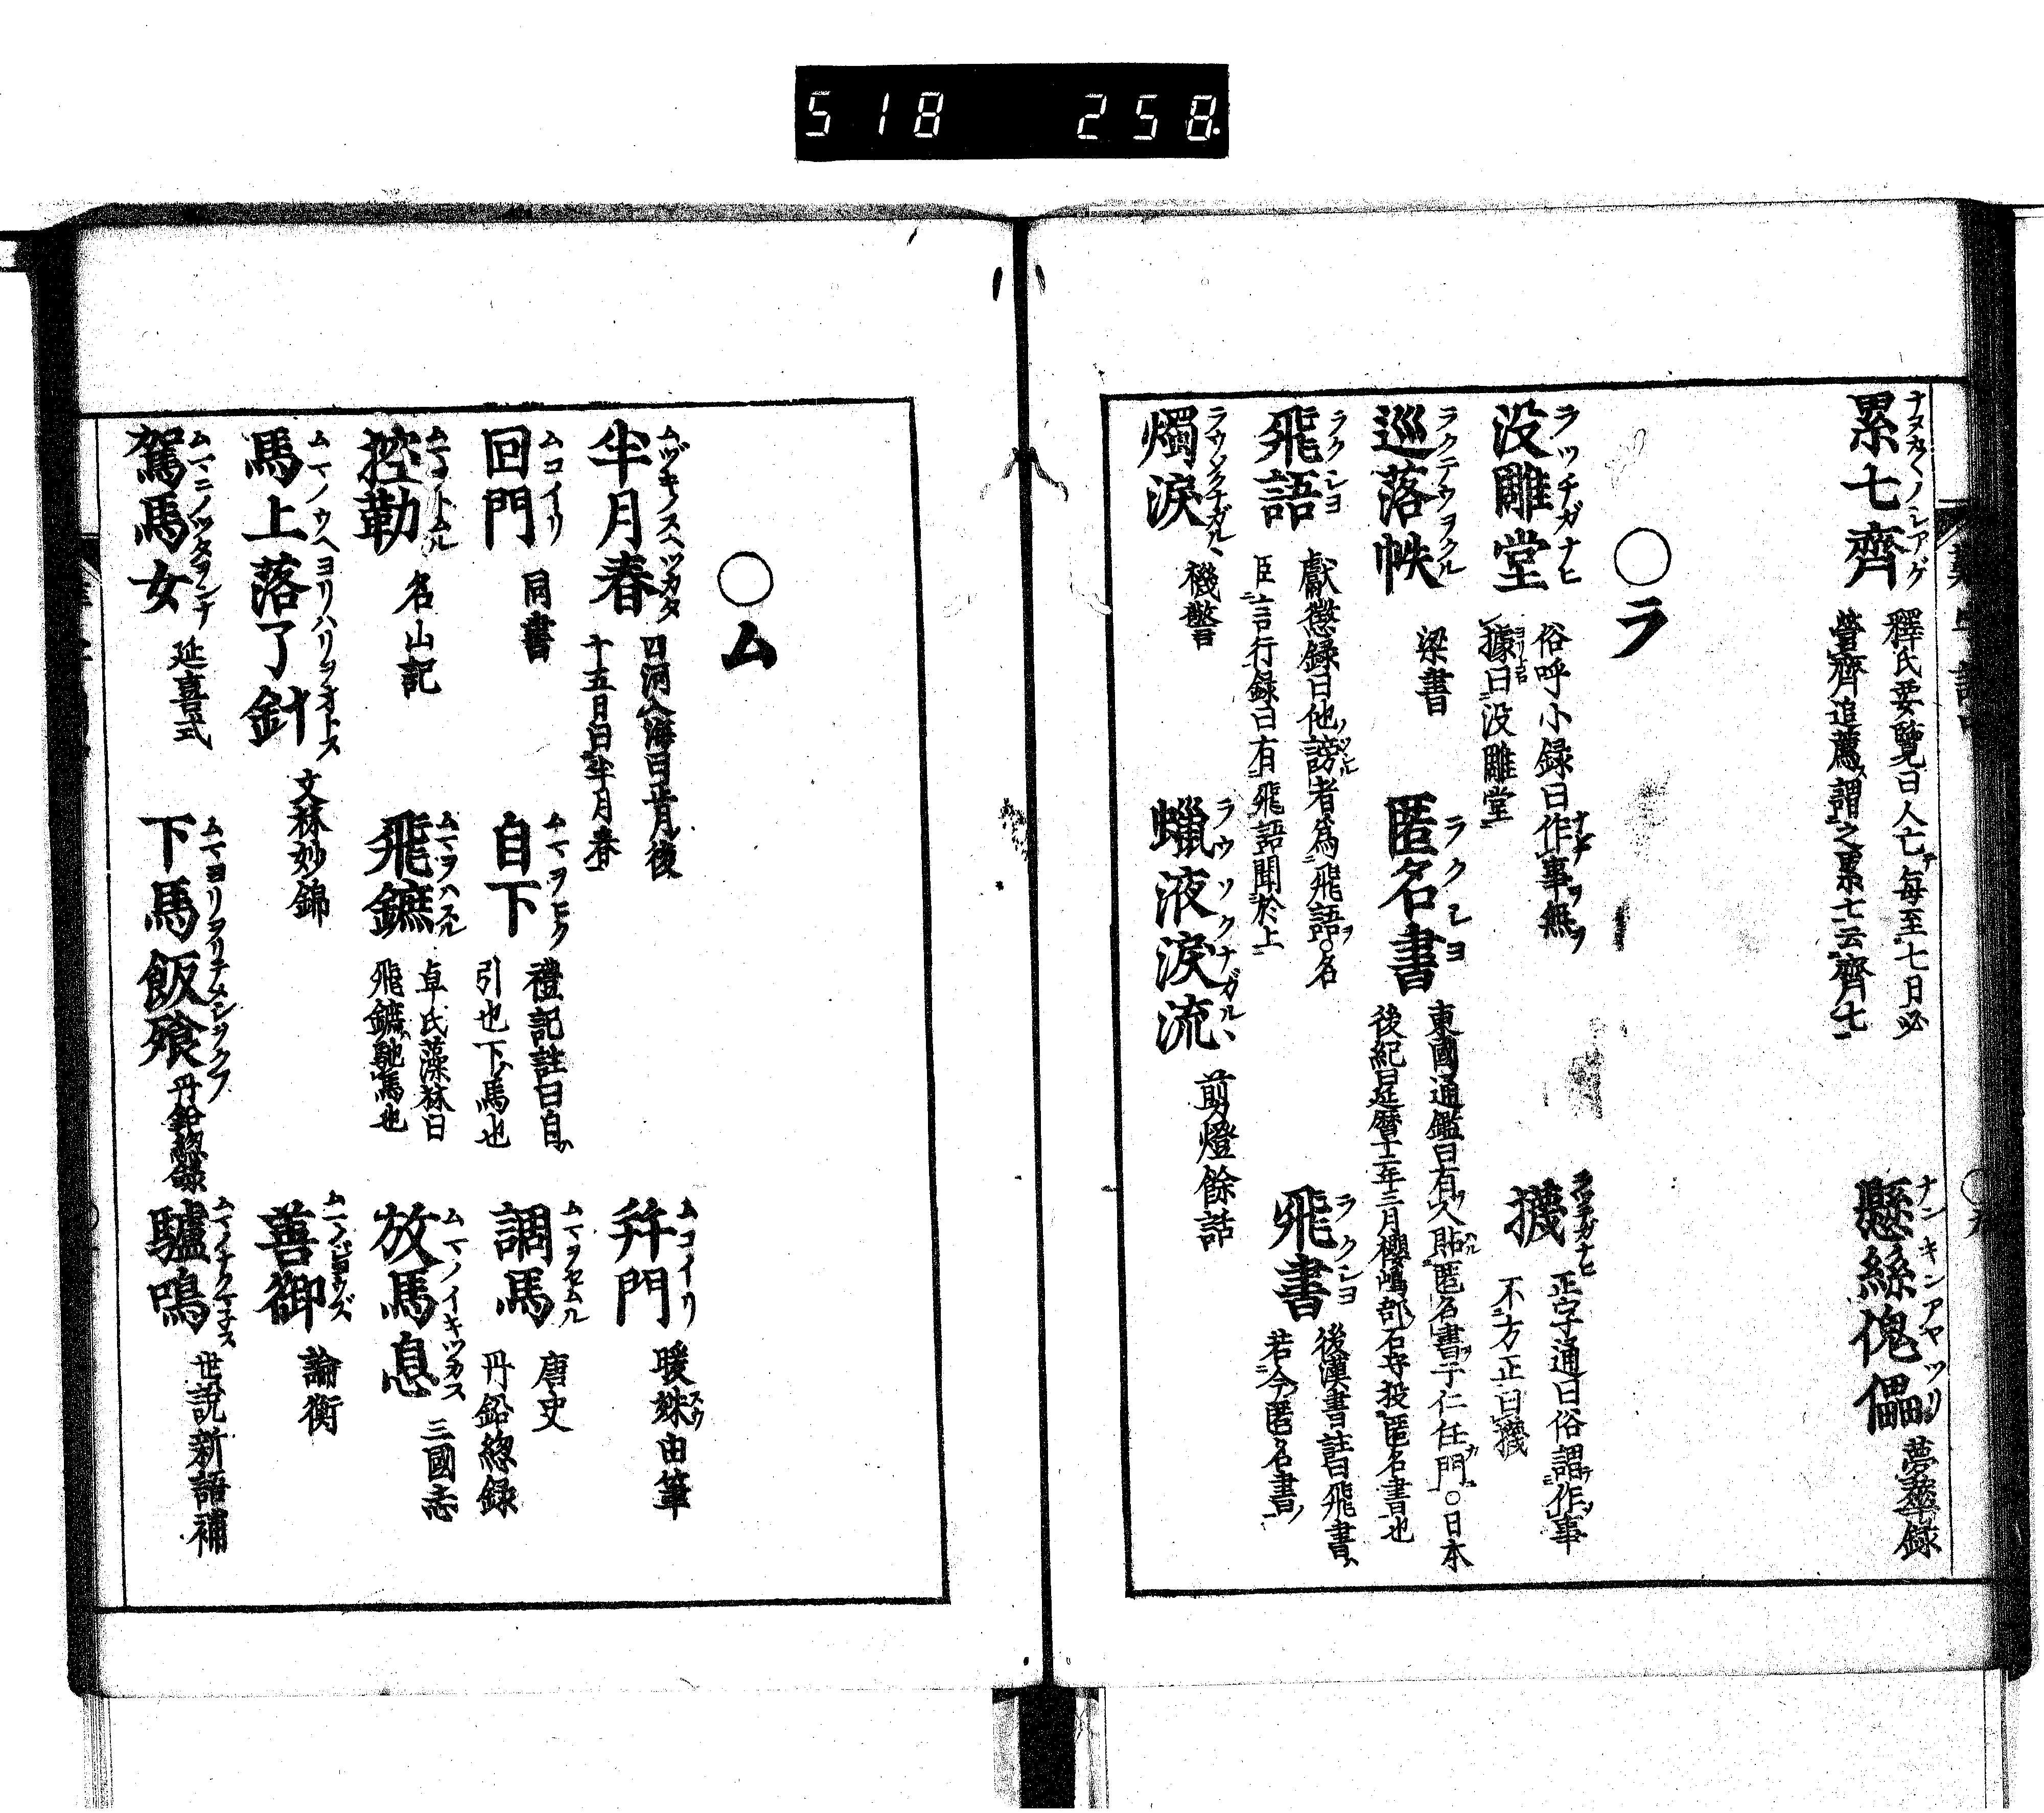 518 258
累七齊
釋氏要覽曰人亡毎至七日必
營齊追薦謂之累七云齊七
懸絲傀儡 ナンキンアヤツリ
夢華録
○ラ
没雕堂 ラツチガナヒ
俗呼小録曰作事無
據曰没雕堂
㩢 ラツチガナヒ
正字通曰俗謂作事
不方正曰㩢
巡落帙 ラクテウヲクル
梁書
匿名書 ラクシヨ
東國通鑑曰有人貼匿名書于仁任門○日本
後紀曰延暦十二年三月櫻嶋部石守投匿名書也
飛語 ラクシヨ
獻懲録曰他謗者爲飛語○名
臣言行録曰有飛語聞於上
飛書 ラクシヨ
後漢書註曰飛書
若今匿名書
燭淚 ラウソクナガルヽ
機警
蠟液淚流 ラウソクナガルヽ
剪燈餘話
○ム
半月春 ムツキノスヘツカタ
四河入海曰正月後
十五月曰半月春
幷門 ムコイリ
暖姝由筆
回門 ムコイリ
同書
自下 ムマヲヒク
禮記註曰自
引也下馬也
調馬 ムマヲセムル
唐史
丹鉛総録
控勒
名山記
飛鑣 ムマヲハスル
卓氏藻林曰
飛鑣馳馬也
放馬息 ムマノイキツカス
三國志
馬上落了針 ムマノウヘヨリハリヲオトス
文林妙錦
善御
論衡
駕馬女 ムマニノツタヲンナ
延喜式
下馬飯飡 ムマヨリヲリテメシヲクフ
丹鉛総録
驢鳴
世説新語補